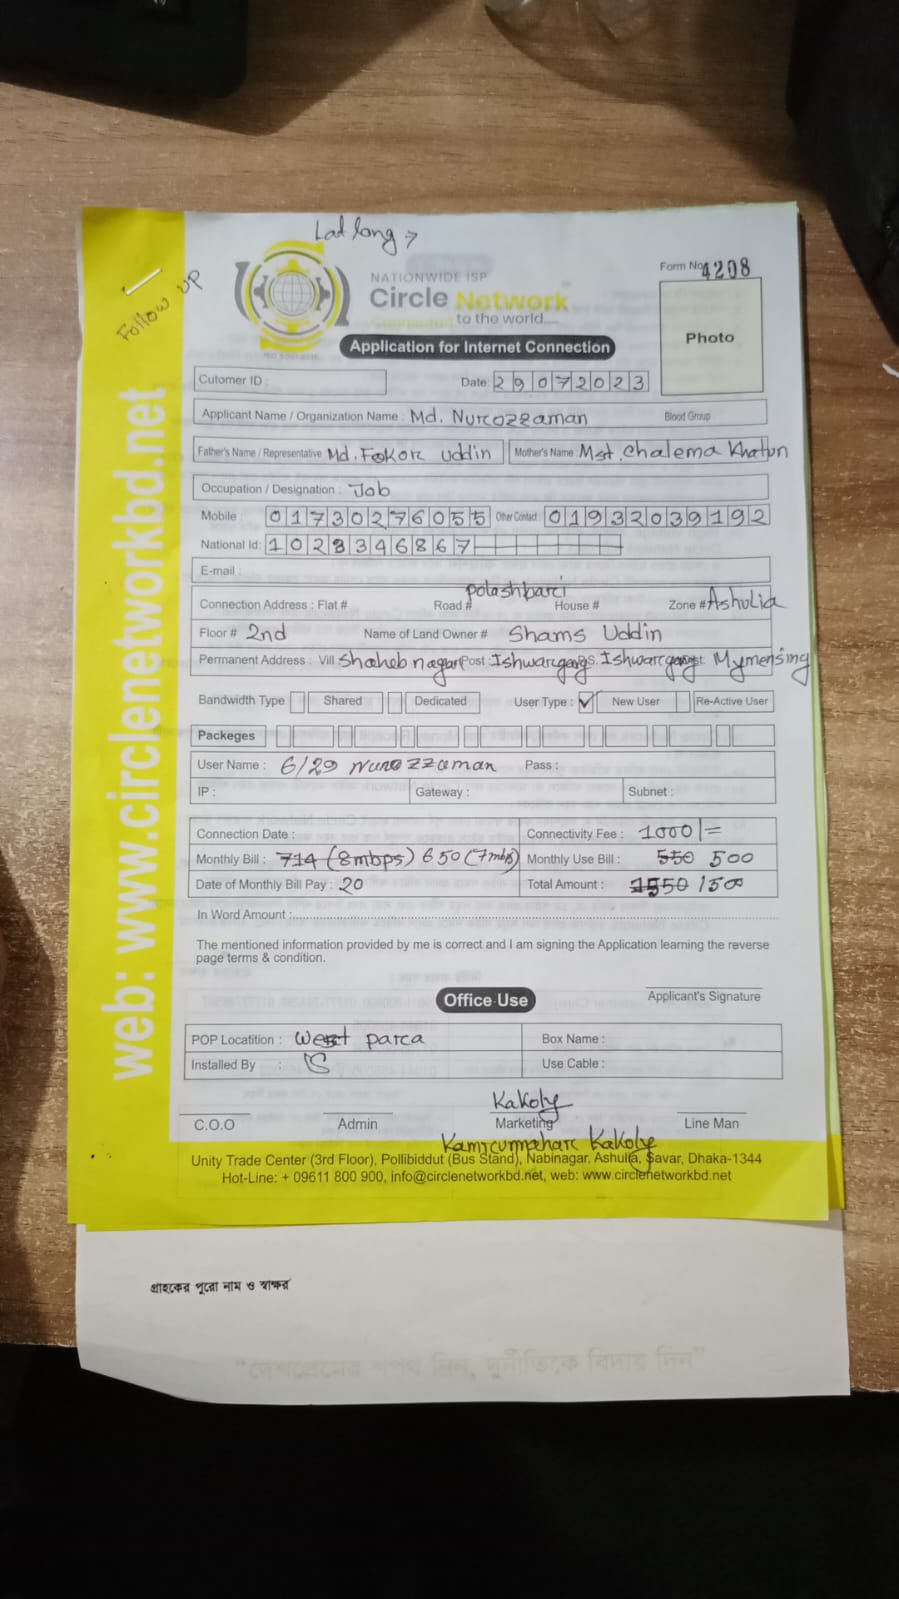 Lat long →
Follow UP
NATIONWIDE ISP
Circle Network
to the world...
Form No. 4208
Photo
Application for Internet Connection
Cutomer ID :
Date: 29072023
Applicant Name / Organization Name : Md. Nurozzaman Blood Group
Father's Name / Representative Md. Fokor Uddin Mother's Name Mst. Chalema Khatun
Occupation / Designation : Job
Mobile : 01730276055 Other Contact 01932039192
National Id: 1028346867
E-mail :
Connection Address : Flat # Road # polashbari House # Zone # Ashulia
Floor # 2nd Name of Land Owner # Shams Uddin
Permanent Address : Vill Shaheb nagar Post : Ishwargang P.S. Ishwargang Dist: Mymensing
Bandwidth Type Shared Dedicated User Type : ✓ New User Re-Active User
Packeges
User Name : 6/29 Nurozzaman Pass :
IP : Gateway : Subnet :
Connection Date : Connectivity Fee : 1000/=
Monthly Bill : 714 (8mbps) 650 (7mbps) Monthly Use Bill : 550 500
Date of Monthly Bill Pay : 20 Total Amount : 1550 1500
In Word Amount :
The mentioned information provided by me is correct and I am signing the Application learning the reverse
page terms & condition.
Office Use
Applicant's Signature
POP Locatition : West parca Box Name :
Installed By : Use Cable :
Kakoly
C.O.O Admin Marketing Line Man
Kamrunnahar Kakoly
Unity Trade Center (3rd Floor), Pollibiddut (Bus Stand), Nabinagar, Ashulia, Savar, Dhaka-1344
Hot-Line: + 09611 800 900, info@circlenetworkbd.net, web: www.circlenetworkbd.net
web: www.circlenetworkbd.net
গ্রাহকের পুরো নাম ও স্বাক্ষর
“দেশপ্রেমের শপথ নিন, দুর্নীতিকে বিদায় দিন”